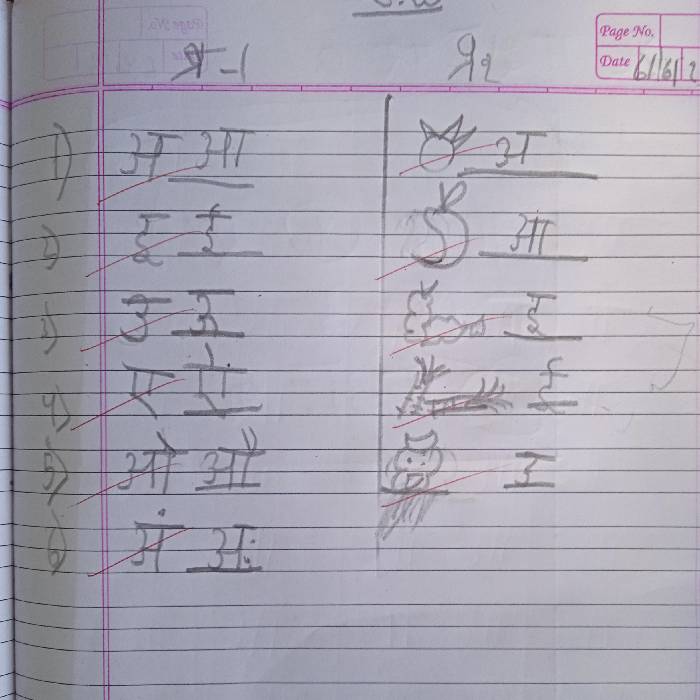 Page No.
Date 6/6/2
प्र-1 प्र2
1) अ आ अ
2) इ ई आ
3) उ ऊ इ
4) ए ऐ ई
5) ओ औ उ
6) अं अः